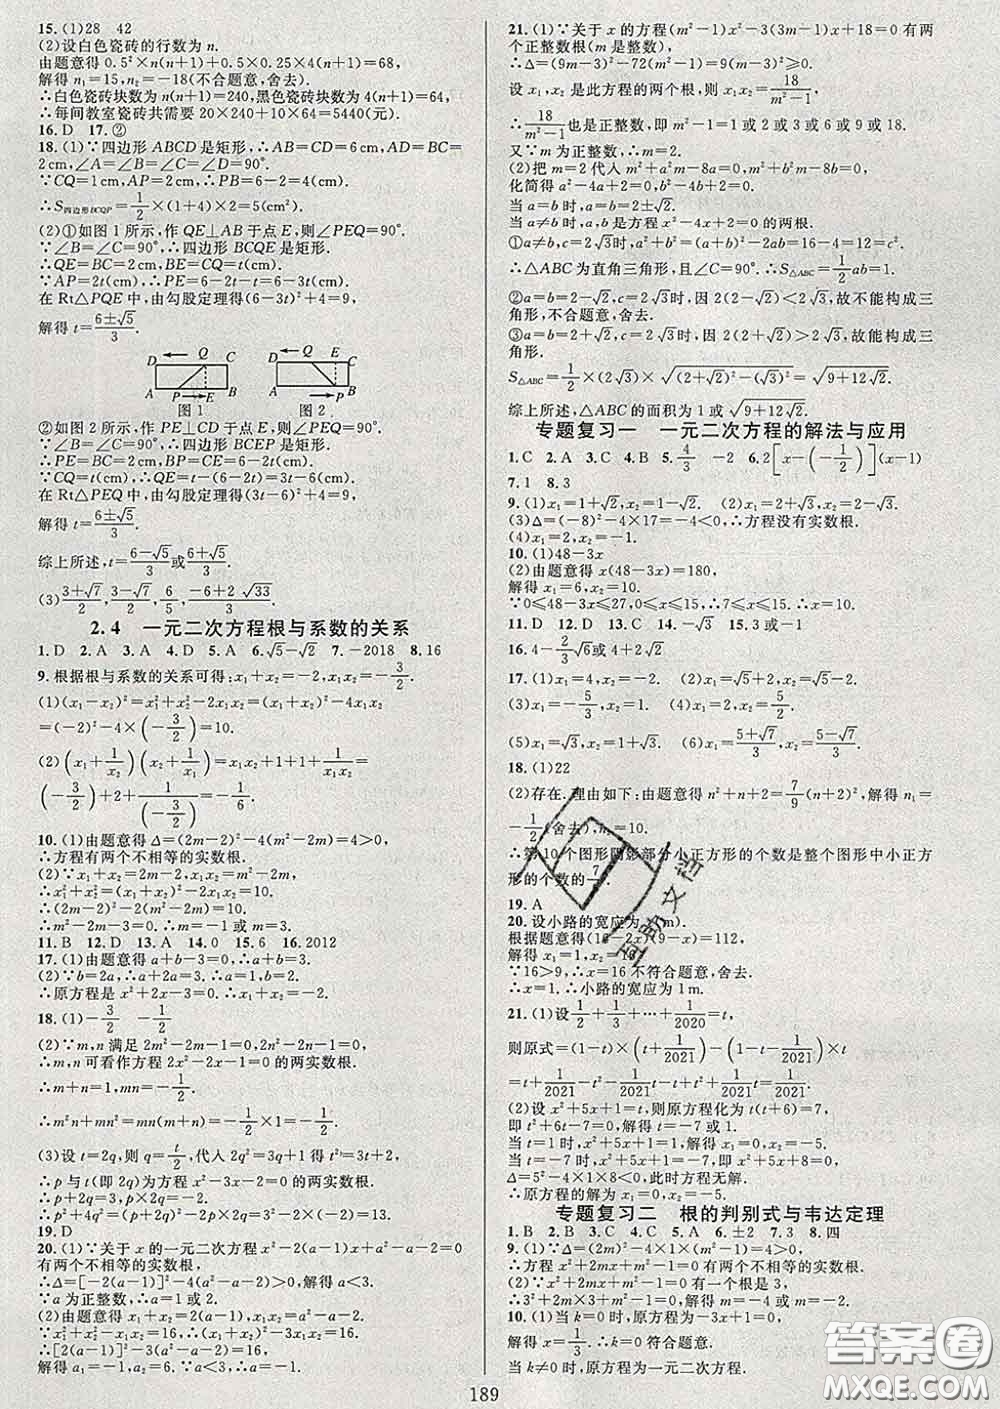 15. (1)28　42
(2)设白色瓷砖的行数为 n.
由题意得 0.5²×n(n+1)+0.5×0.25×4(n+1)=68,
解得 n₁=15,n₂=-18(不合题意,舍去).
∴白色瓷砖块数为 n(n+1)=240,黑色瓷砖块数为 4(n+1)=64,
∴每间教室瓷砖共需要 20×240+10×64=5440(元).
16. D　17. ②
18. (1)∵四边形 ABCD 是矩形,∴AB=CD=6cm,AD=BC=
2cm,∠A=∠B=∠C=∠D=90°.
∵CQ=1cm,AP=2cm,∴PB=6-2=4(cm).
∴S四边形BCQP=1/2×(1+4)×2=5(cm²).
(2)①如图 1 所示,作 QE⊥AB 于点 E,则∠PEQ=90°.
∵∠B=∠C=90°,∴四边形 BCQE 是矩形.
∴QE=BC=2cm,BE=CQ=t(cm).
∵AP=2t(cm),∴PE=6-2t-t=6-3t(cm).
在 Rt△PQE 中,由勾股定理得(6-3t)²+4=9,
解得 t=(6±√5)/3.
D Q C
A P E B
图 1
D E C
A Q P B
图 2
②如图 2 所示,作 PE⊥CD 于点 E,则∠PEQ=90°.
∵∠B=∠C=90°,∴四边形 BCEP 是矩形.
∴PE=BC=2cm,BP=CE=6-2t(cm).
∵CQ=t(cm),∴QE=t-(6-2t)=3t-6(cm).
在 Rt△PEQ 中,由勾股定理得(3t-6)²+4=9,
解得 t=(6±√5)/3.
综上所述,t=(6-√5)/3或(6+√5)/3.
(3)(3+√7)/2,(3-√7)/2,6/5,(-6+2√33)/2.
2.4　一元二次方程根与系数的关系
1. D　2. A　3. A　4. D　5. D　6. √5-√2　7. -2018　8. 16
9. 根据根与系数的关系可得:x₁+x₂=-2,x₁x₂=-3/2.
(1)(x₁-x₂)²=x₁²+x₂²-2x₁x₂=(x₁+x₂)²-4x₁x₂
=(-2)²-4×(-3/2)=10.
(2)(x₁+1/x₂)(x₂+1/x₁)=x₁x₂+1+1+1/x₁x₂=
(-3/2)+2+1/(-3/2)=-1/6.
10. (1)由题意得 Δ=(2m-2)²-4(m²-2m)=4>0,
∴方程有两个不相等的实数根.
(2)∵x₁+x₂=2m-2,x₁x₂=m²-2m,
∴x₁²+x₂²=(x₁+x₂)²-2x₁x₂=10.
∴(2m-2)²-2(m²-2m)=10.
∴m²-2m-3=0.∴m=-1 或 m=3.
11. B　12. D　13. A　14. 0　15. 6　16. 2012
17. (1)由题意得 a+b-3=0,∴a+b=3.
(2)∵x₁+x₂=-a=-1,∴a=1.∴b=2.
∴原方程是 x²+x-2=0.∴x₁=1,x₂=-2.
18. (1)-3/2　-1/2
(2)∵m,n 满足 2m²-2m-1=0,2n²-2n-1=0,
∴m,n 可看作方程 2x²-2x-1=0 的两实数根.
∴m+n=1,mn=-1/2.
∴m²n+mn²=mn(m+n)=-1/2×1=-1/2.
(3)设 t=2q,则 q=t/2,代入 2q²=3q+1 得 t²=3t+2,
∴p 与 t(即 2q)为方程 x²-3x-2=0 的两实数根.
∴p+2q=3,p×2q=-2.
∴p²+4q²=(p+2q)²-2p×2q=3²-2×(-2)=13.
19. D
20. (1)∵关于 x 的一元二次方程 x²-2(a-1)x+a²-a-2=0
有两个不相等的实数根,
∴Δ=[-2(a-1)]²-4(a²-a-2)>0,解得 a<3.
∵a 为正整数,∴a=1 或 2.
(2)由题意得 x₁+x₂=2(a-1),x₁x₂=a²-a-2.
∵x₁²+x₂²-x₁x₂=16,∴(x₁+x₂)²-3x₁x₂=16.
∴[2(a-1)]²-3(a²-a-2)=16,
解得 a₁=-1,a₂=6.∵a<3,∴a=-1.
21. (1)∵关于 x 的方程(m²-1)x²-3(3m-1)x+18=0 有两
个正整数根(m 是整数),
∴Δ=(9m-3)²-72(m²-1)=9(m-3)²≥0.
设 x₁,x₂ 是此方程的两个根,则 x₁x₂=18/(m²-1).
∴18/(m²-1)也是正整数,即 m²-1=1 或 2 或 3 或 6 或 9 或 18.
又∵m 为正整数,∴m=2.
(2)把 m=2 代入 m²+a²m-8a=0,m²+b²m-8b=0,
化简得 a²-4a+2=0,b²-4b+2=0.
当 a=b 时,a=b=2±√2.
当 a≠b 时,a,b 是方程 x²-4x+2=0 的两根.
①a≠b,c=2√3时,a²+b²=(a+b)²-2ab=16-4=12=c².
∴△ABC 为直角三角形,且∠C=90°.∴S△ABC=1/2ab=1.
②a=b=2-√2,c=2√3时,因 2(2-√2)<2√3,故不能构成三
角形,不合题意,舍去.
③a=b=2+√2,c=2√3时,因 2(2+√2)>2√3,故能构成三
角形.
S△ABC=1/2×(2√3)×√((2+√2)²-(√3)²)=√(9+12√2).
综上所述,△ABC 的面积为 1 或√(9+12√2).
专题复习一　一元二次方程的解法与应用
1. C　2. A　3. C　4. B　5. 4/3　-2　6. 2[x-(-1/2)](x-1)
7. 1　8. 3
9. (1)x₁=1+√2,x₂=1-√2.　(2)x₁=0,x₂=2.
(3)Δ=(-8)²-4×17=-4<0,∴方程没有实数根.
(4)x₁=2,x₂=-1.
10. (1)48-3x
(2)由题意得 x(48-3x)=180,
解得 x₁=6,x₂=10.
∵0≤48-3x≤27,0≤x≤15,∴7≤x≤15.∴x=10.
11. D　12. D　13. C　14. -√3　15. 3 或-1
16. 4-2/3√6或1+√13
17. (1)x₁=4,x₂=-2.　(2)x₁=√5+2,x₂=√5-2.
(3)x₁=-5/3,x₂=1.　(4)x₁=3,x₂=-9.
(5)x₁=√3,x₂=1-√3.　(6)x₁=(5+√7)/3,x₂=(5-√7)/3.
18. (1)22
(2)存在.理由如下:由题意得 n²+n+2=7/9(n+2)²,解得 n₁=
-1/2(舍去),n₂=10.
∴第 10 个图形阴影部分小正方形的个数是整个图形中小正方
形的个数的7/9.
19. A
20. 设小路的宽应为 x(m).
根据题意得(16-2x)(9-x)=112,
解得 x₁=1,x₂=16.
∵16>9,∴x=16 不符合题意,舍去.
∴x=1.∴小路的宽应为 1m.
21. (1)设1/2+1/3+…+1/2020=t,
则原式=(1-t)×(t+1/2021)-(1-t-1/2021)×t
=t+1/2021-t²-1/2021t-t+t²+1/2021t=1/2021.
(2)设 x²+5x+1=t,则原方程化为 t(t+6)=7,
即 t²+6t-7=0,解得 t=-7 或 1.
当 t=1 时,x²+5x+1=1,解得 x₁=0,x₂=-5.
当 t=-7 时,x²+5x+1=-7,即 x²+5x+8=0,
Δ=5²-4×1×8<0,此时方程无解.
∴原方程的解为 x₁=0,x₂=-5.
专题复习二　根的判别式与韦达定理
1. B　2. B　3. C　4. C　5. A　6. ±2　7. 3　8. 四
9. (1)∵Δ=(2m)²-4×1×(m²-1)=4>0,
∴方程 x²+2mx+m²-1=0 有两个不相等的实数根.
(2)∵x²+2mx+m²-1=0 有一个根是 3,
∴3²+2m×3+m²-1=0,解得 m=-4 或 m=-2.
10. (1)当 k=0 时,原方程为-3x+1=0,
解得 x=1/3.∴k=0 符合题意.
当 k≠0 时,原方程为一元二次方程.
189
互助文档
答案圈
MXQE.COM